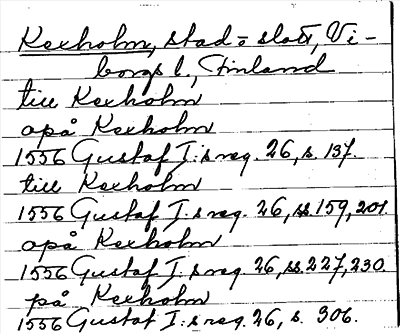 Kexholm, stad o slott, Vi-
borgs l., Finland
till Kexholm
opå Kexholm
1556 Gustaf I:s reg. 26, s. 137.
till Kexholm
1556 Gustaf I:s reg. 26, ss. 159, 201.
opå Kexholm
1556 Gustaf I:s reg. 26, ss. 227, 230.
på Kexholm
1556 Gustaf I:s reg. 26, s. 306.